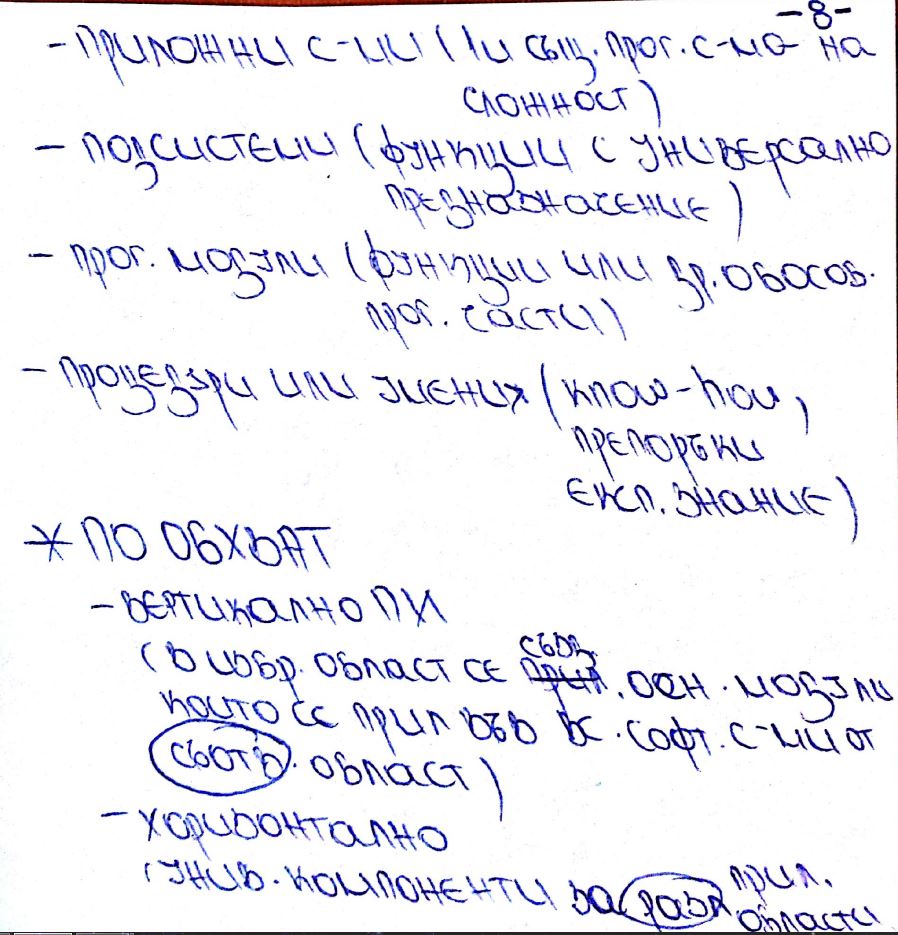 -8-
- приложни с-ми (/и същ. прог. с-ма на
сложност)
- подсистеми (функции с универсално
предназначение)
- прог. модули (функции или др. обособ.
прог. части)
- процедури или умения (know-how,
препоръки
експ. знание)
* ПО ОБХВАТ
- вертикално ПИ
(в избр. област се създ. осн. модули
които се прил във вс. софт. с-ми от
съотв. област)
- хоризонтално
(унив. компоненти за разл прил.
области